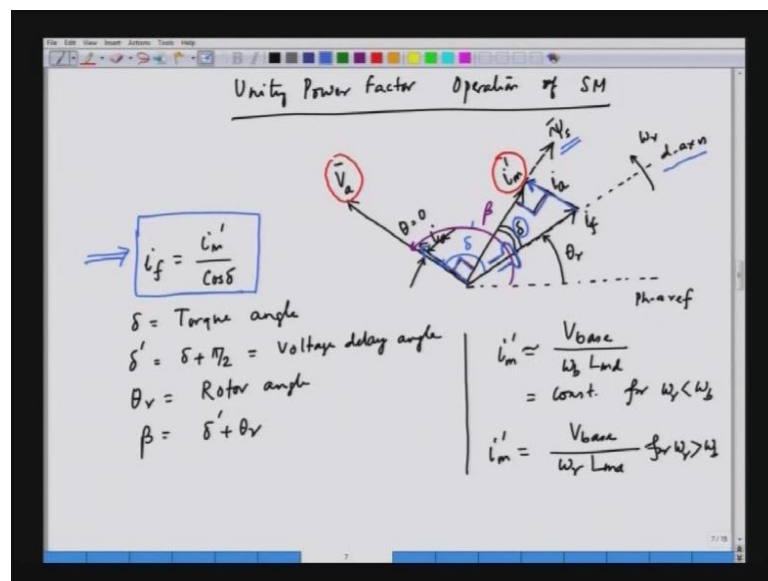 File Edit View Insert Actions Tools Help
Unity Power Factor Operation of SM
V̄a
i̅m'
ψ̄s
ωr
d-axis
θ=0
ia
β
δ'
δ
ia
if
θr
Ph-a ref
if = im' / cosδ
δ = Torque angle
δ' = δ + π/2 = Voltage delay angle
θr = Rotor angle
β = δ' + θr
im' ≃ Vbase / ωb Lmd
= const. for ωr < ωb
im' = Vbase / ωr Lmd for ωr > ωb
7
7/18